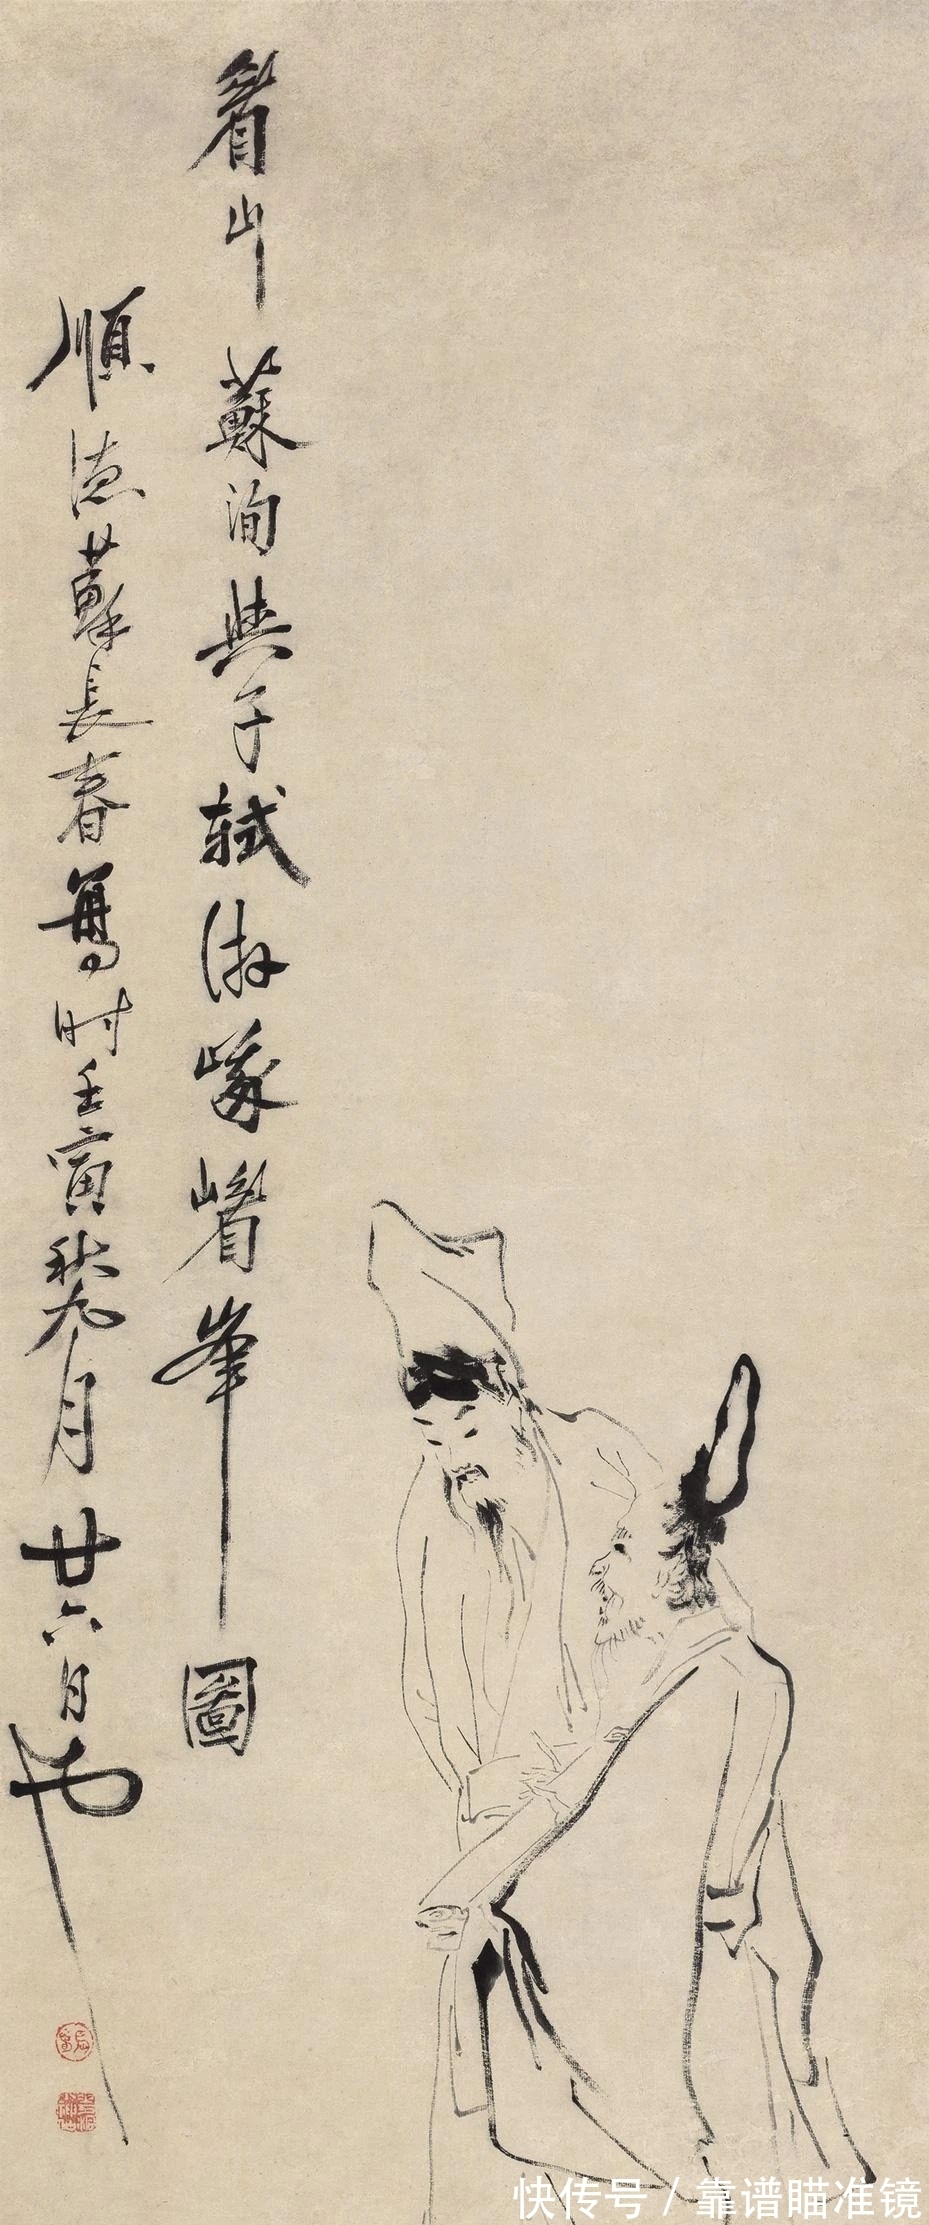 眉山蘇洵與子軾游峨嵋峯圖
順德蘇長春寫時壬寅秋九月廿六日也
快传号 / 靠谱瞄准镜